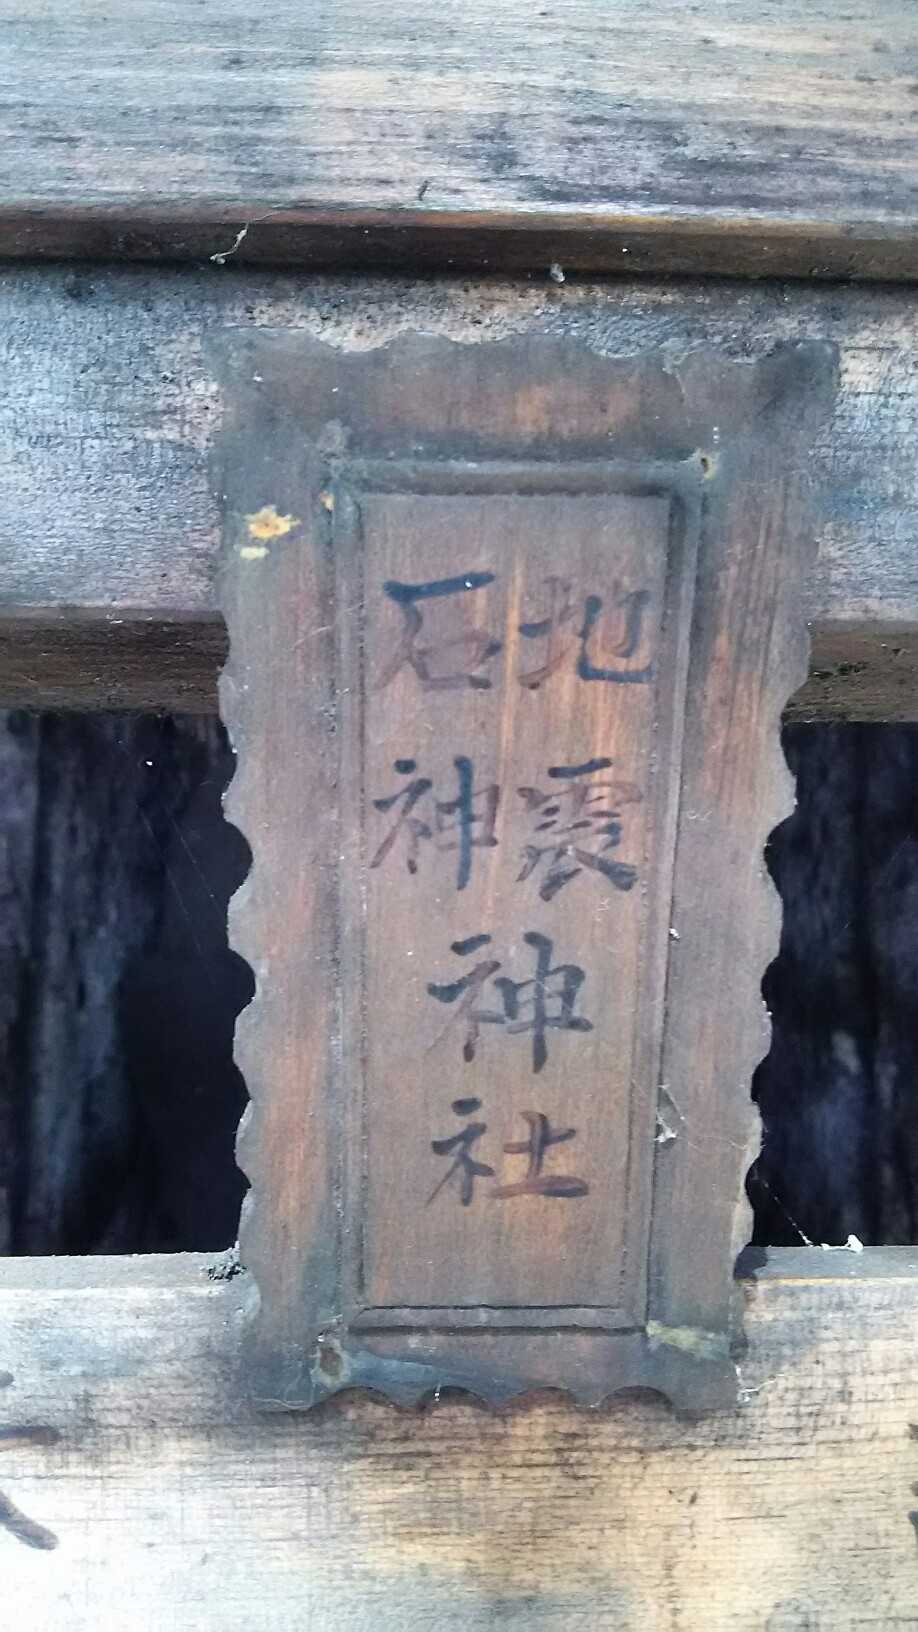 地震
石神
神社